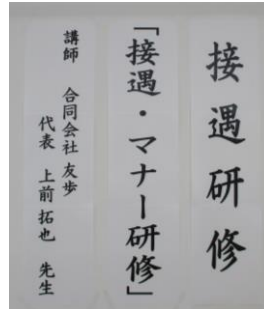 接遇研修
「接遇・マナー研修」
講師　合同会社 友歩
代表　上前 拓也　先生